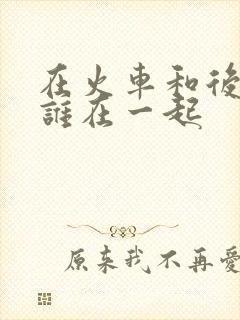 在火車和後
誰在一起
原来我不再愛